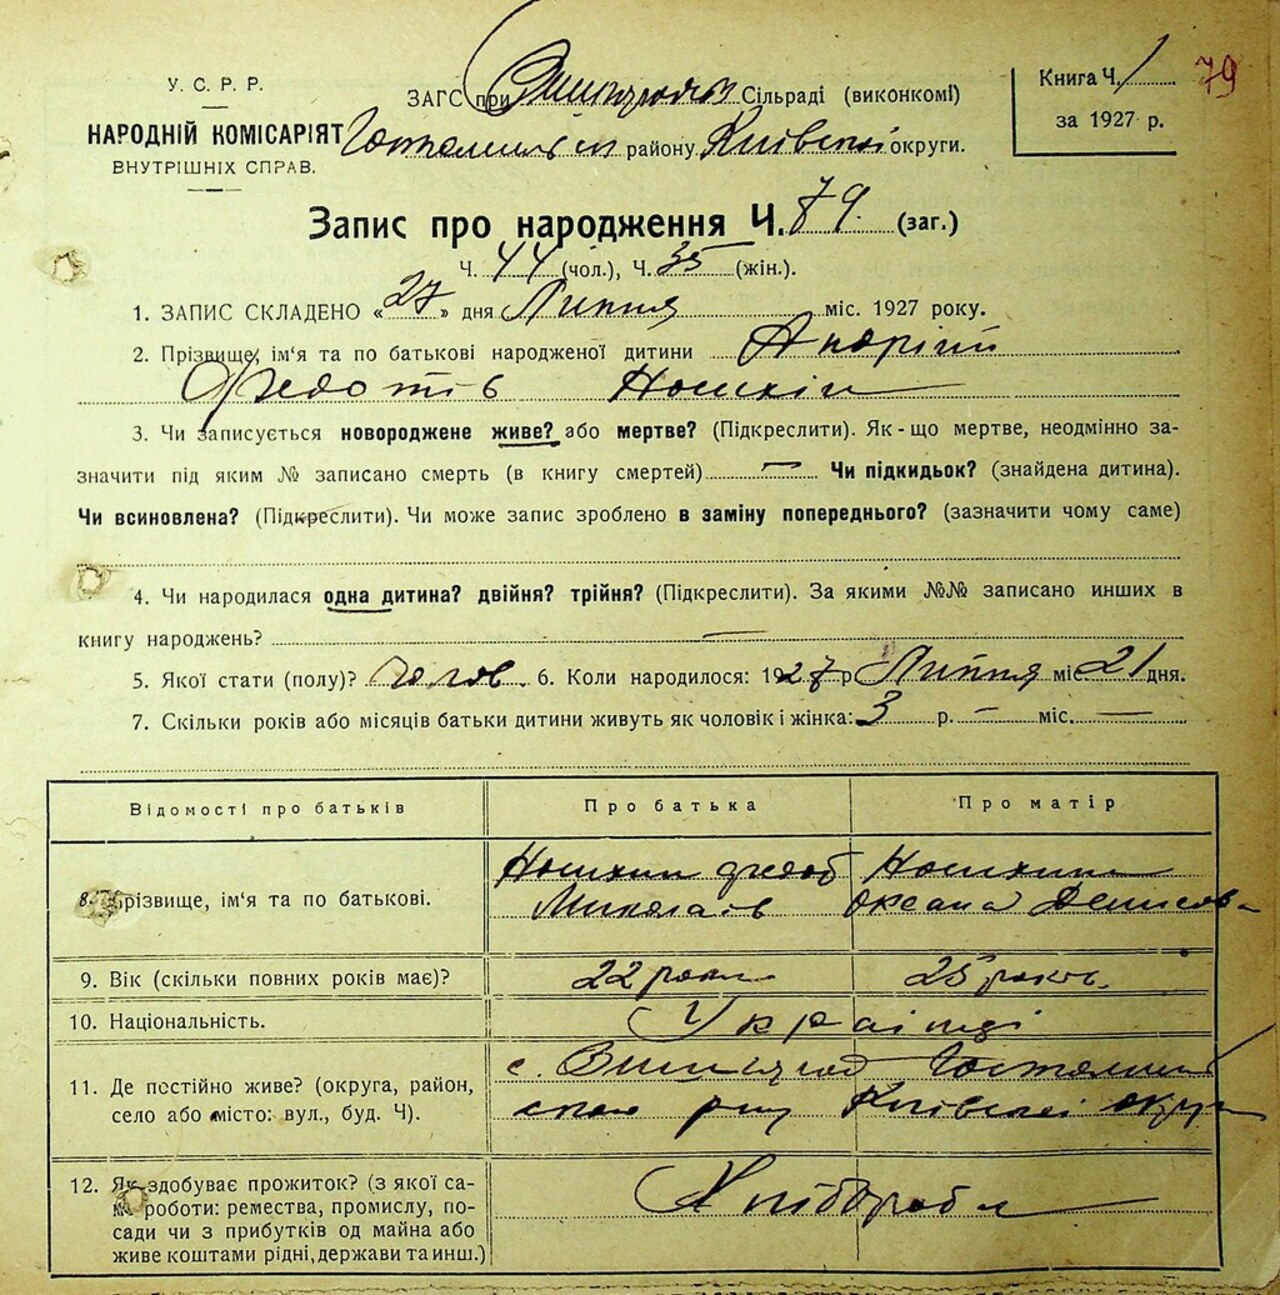 У. С. Р. Р.
НАРОДНІЙ КОМІСАРІЯТ
ВНУТРІШНІХ СПРАВ.
ЗАГС при Сільраді (виконкомі)
району Київської округи.
Книга Ч. 1
за 1927 р.
79
Запис про народження Ч. 79. (заг.)
Ч. 44 (чол.), Ч. 35 (жін.).
1. ЗАПИС СКЛАДЕНО «27» дня Липня міс. 1927 року.
2. Прізвище, ім'я та по батькові народженої дитини Андрій
Федотів
3. Чи записується новороджене живе? або мертве? (Підкреслити). Як-що мертве, неодмінно за-
значити під яким № записано смерть (в книгу смертей) — Чи підкидьок? (знайдена дитина).
Чи всиновлена? (Підкреслити). Чи може запис зроблено в заміну попереднього? (зазначити чому саме)
4. Чи народилася одна дитина? двійня? трійня? (Підкреслити). За якими №№ записано инших в
книгу народжень? —
5. Якої стати (полу)? чолов. 6. Коли народилося: 1927 р Липня міс. 21 дня.
7. Скільки років або місяців батьки дитини живуть як чоловік і жінка: 3 р. — міс. —
Відомості про батьків
Про батька
Про матір
8. Прізвище, ім'я та по батькові.
Федот
Миколаїв
Оксана Денисов
9. Вік (скільки повних років має)?
22 роки
25 років.
10. Національність.
Українці
11. Де постійно живе? (округа, район,
село або місто: вул., буд. Ч).
с.
Київської округи
12. Як здобуває прожиток? (з якої са-
роботи: ремества, промислу, по-
сади чи з прибутків од майна або
живе коштами рідні, держави та инш.)
Хлібороби